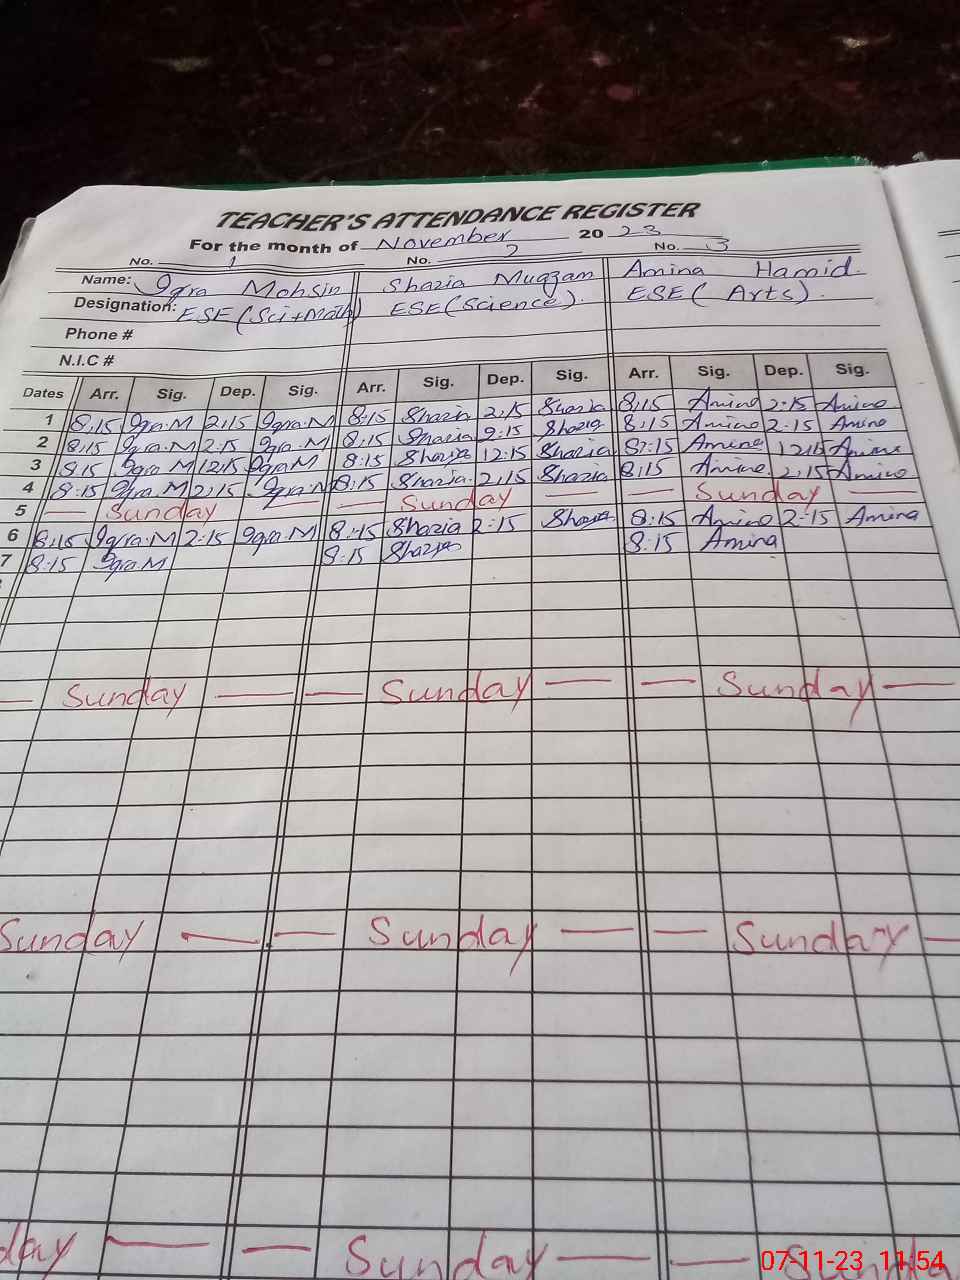 TEACHER'S ATTENDANCE REGISTER
For the month of November 2023
No. 1 No. 2 No. 3
Name: Iqra Mohsin Shazia Muazam Amina Hamid.
Designation: ESE (Sci+Math) ESE (Science). ESE (Arts).
Phone #
N.I.C #
Dates Arr. Sig. Dep. Sig. Arr. Sig. Dep. Sig. Arr. Sig. Dep. Sig.
1 8:15 Iqra.M 2:15 Iqra.M 8:15 Shazia 2:15 Shazia 8:15 Amina 2:15 Amina
2 8:15 Iqra.M 2:15 Iqra.M 8:15 Shazia 2:15 Shazia 8:15 Amina 2:15 Amina
3 8:15 Iqra M 12:15 Iqra M 8:15 Shazia 12:15 Shazia 8:15 Amina 12:15 Amina
4 8:15 Iqra.M 2:15 Iqra.M 8:15 Shazia. 2:15 Shazia 8:15 Amina. 2:15 Amina
5 — Sunday — — Sunday — — Sunday —
6 8:15 Iqra.M 2:15 Iqra.M 8:15 Shazia 2:15 Shazia 8:15 Amina 2:15 Amina
7 8:15 Iqra.M 8:15 Shazia 8:15 Amina
— Sunday — — Sunday — — Sunday —
Sunday — — Sunday — — Sunday —
day — — Sunday — —
07-11-23 11:54